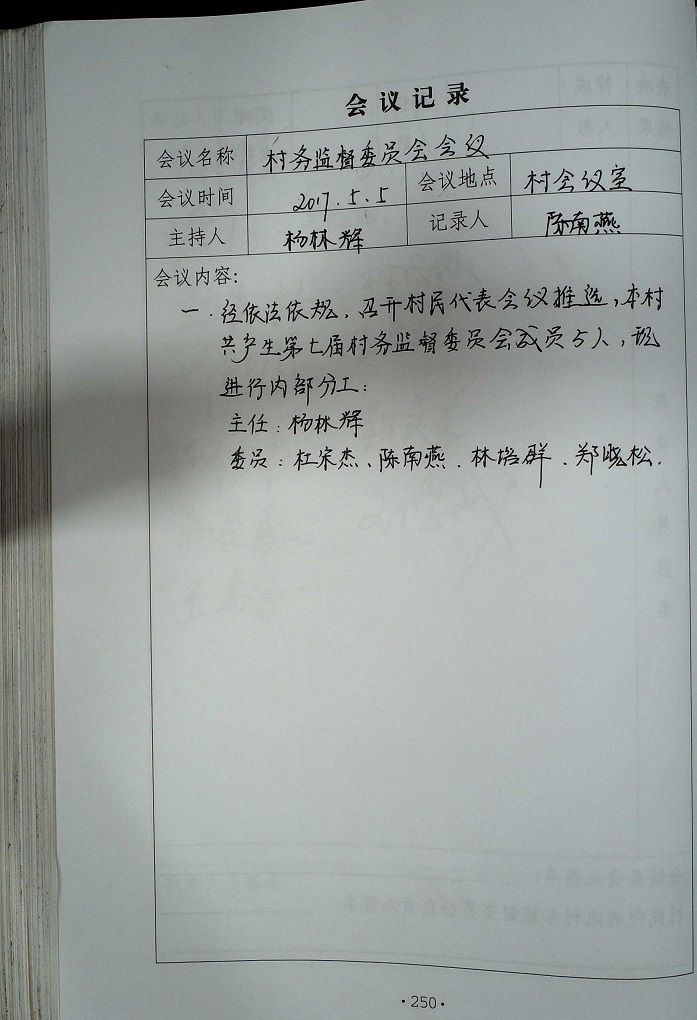 会议记录
会议名称 村务监督委员会会议
会议时间 2017.5.5 会议地点 村会议室
主持人 杨林辉 记录人 陈南燕
会议内容:
一.经依法依规,召开村民代表会议推选,本村
共产生第七届村务监督委员会成员5人,现
进行内部分工:
主任:杨林辉
委员:杜宋杰、陈南燕.林培群.郑晓松.
·250·